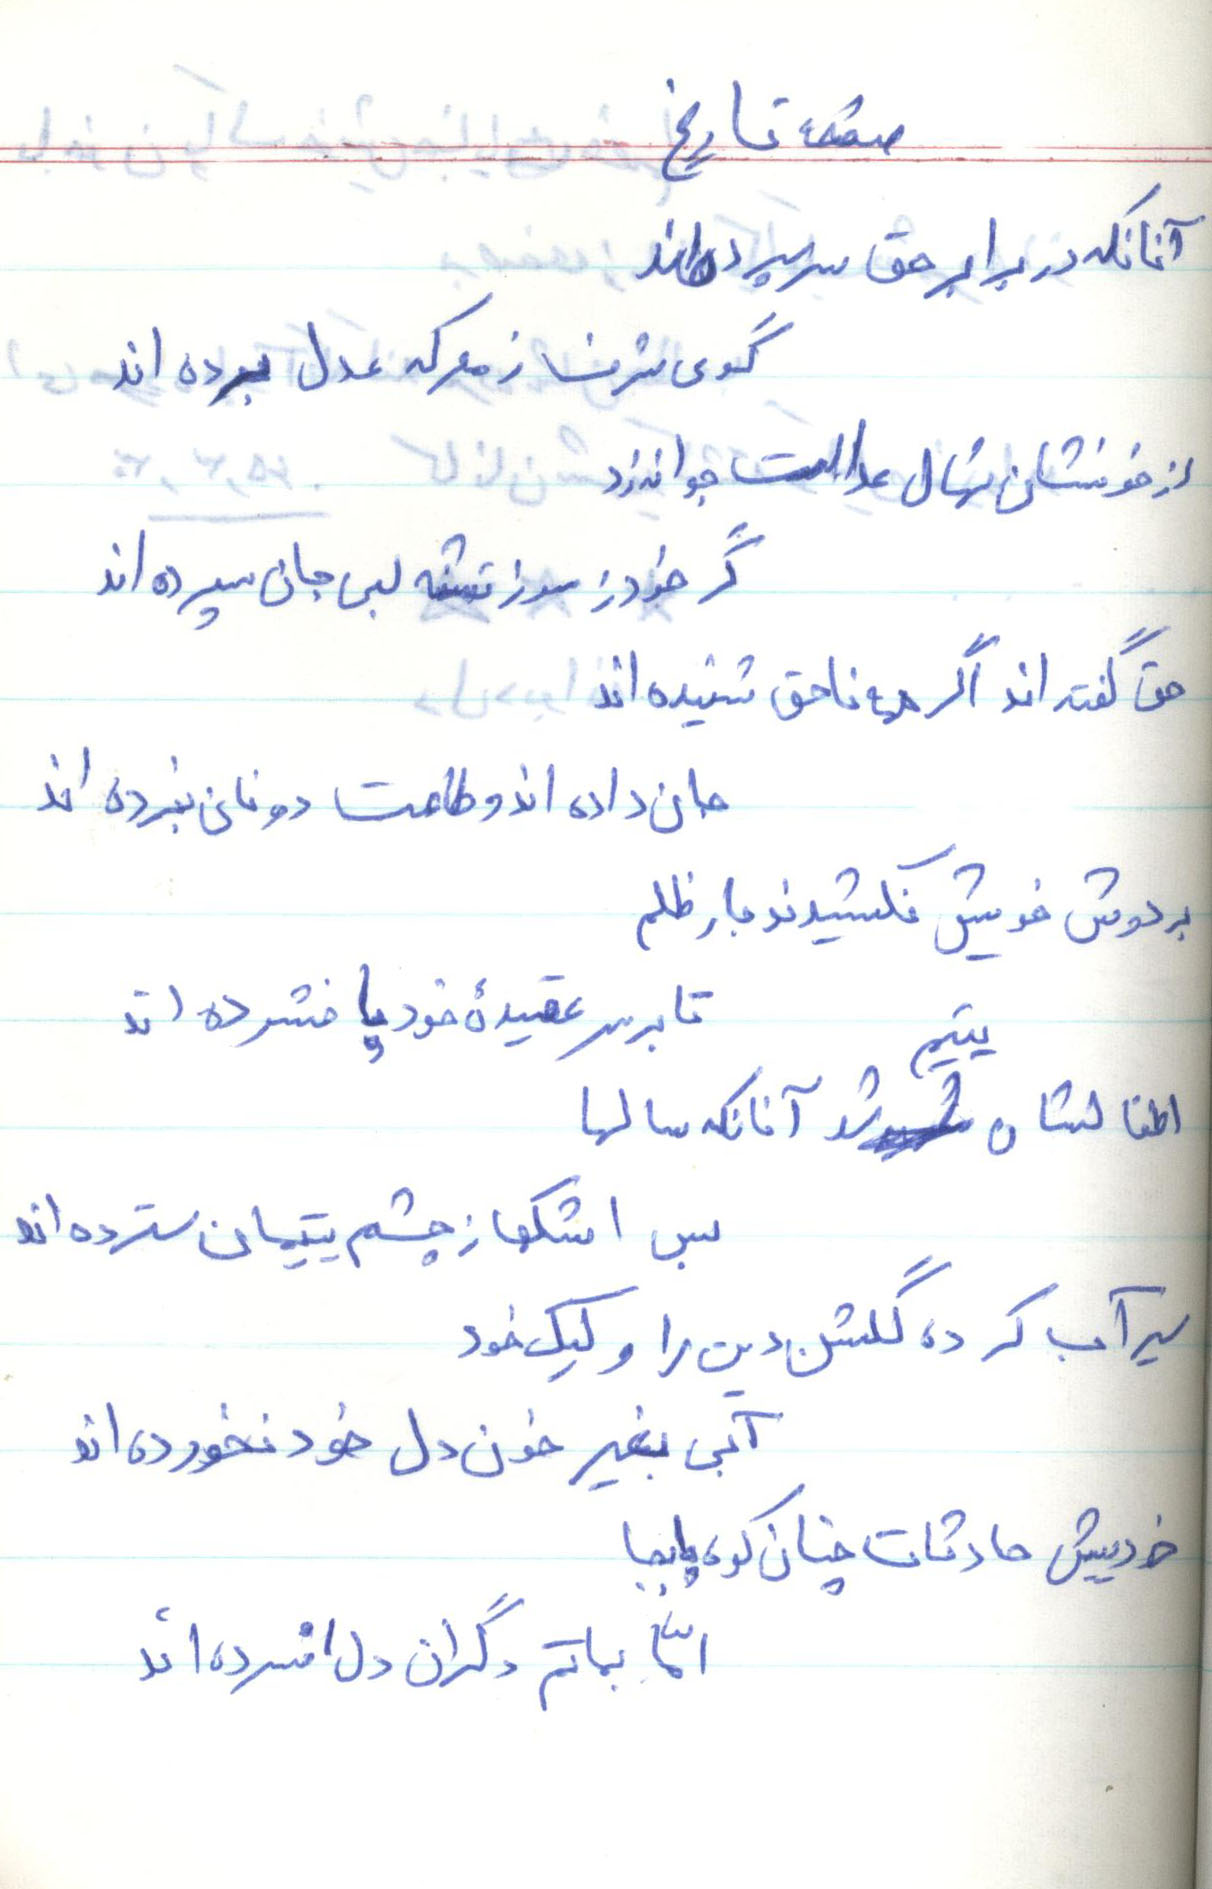 صفحه تاریخ
آنانکه در برابر حق سر سپرده اند
گوی شرف ز معرکه عدل برده اند
از خونشان نهال عدالت جوانه زد
گر خود ز سوز تشنه لبی جان سپرده اند
حق گفته اند اگر همه ناحق شنیده اند
جان داده اند و طاعت دونان نبرده اند
بر دوش خویش نکشیدند بار ظلم
تا بر سر عقیدهٔ خود پا فشرده اند
اطفالشان یتیم شد آنانکه سالها
بس اشکها ز چشم یتیمان سترده اند
سیرآب کرده گلشن دین را و لیک خود
آبی بغیر خون دل خود نخورده اند
خود پیش حادثات چنان کوه پابجا
امّا بماتم دگران دل افسرده اند